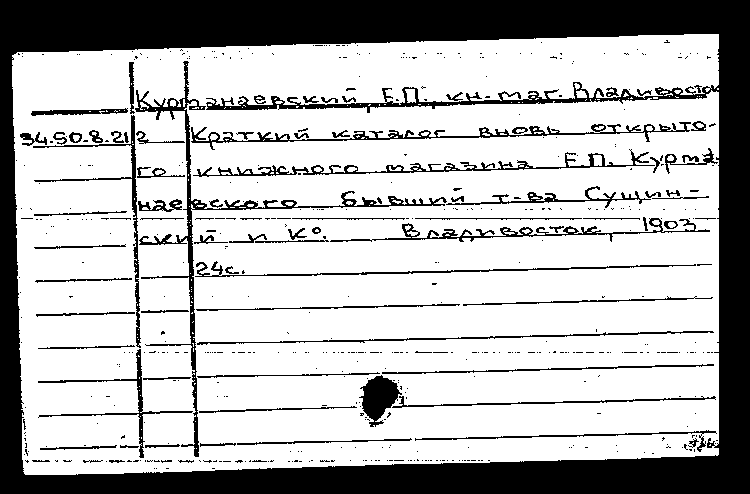 Курманаевский, Е.П., кн-маг. Владивосток
34.50.8.21/2 Краткий каталог вновь открыто-
го книжного магазина Е.П. Курма-
наевского бывший т-ва Сущин-
ский и К°. Владивосток, 1903
24с.